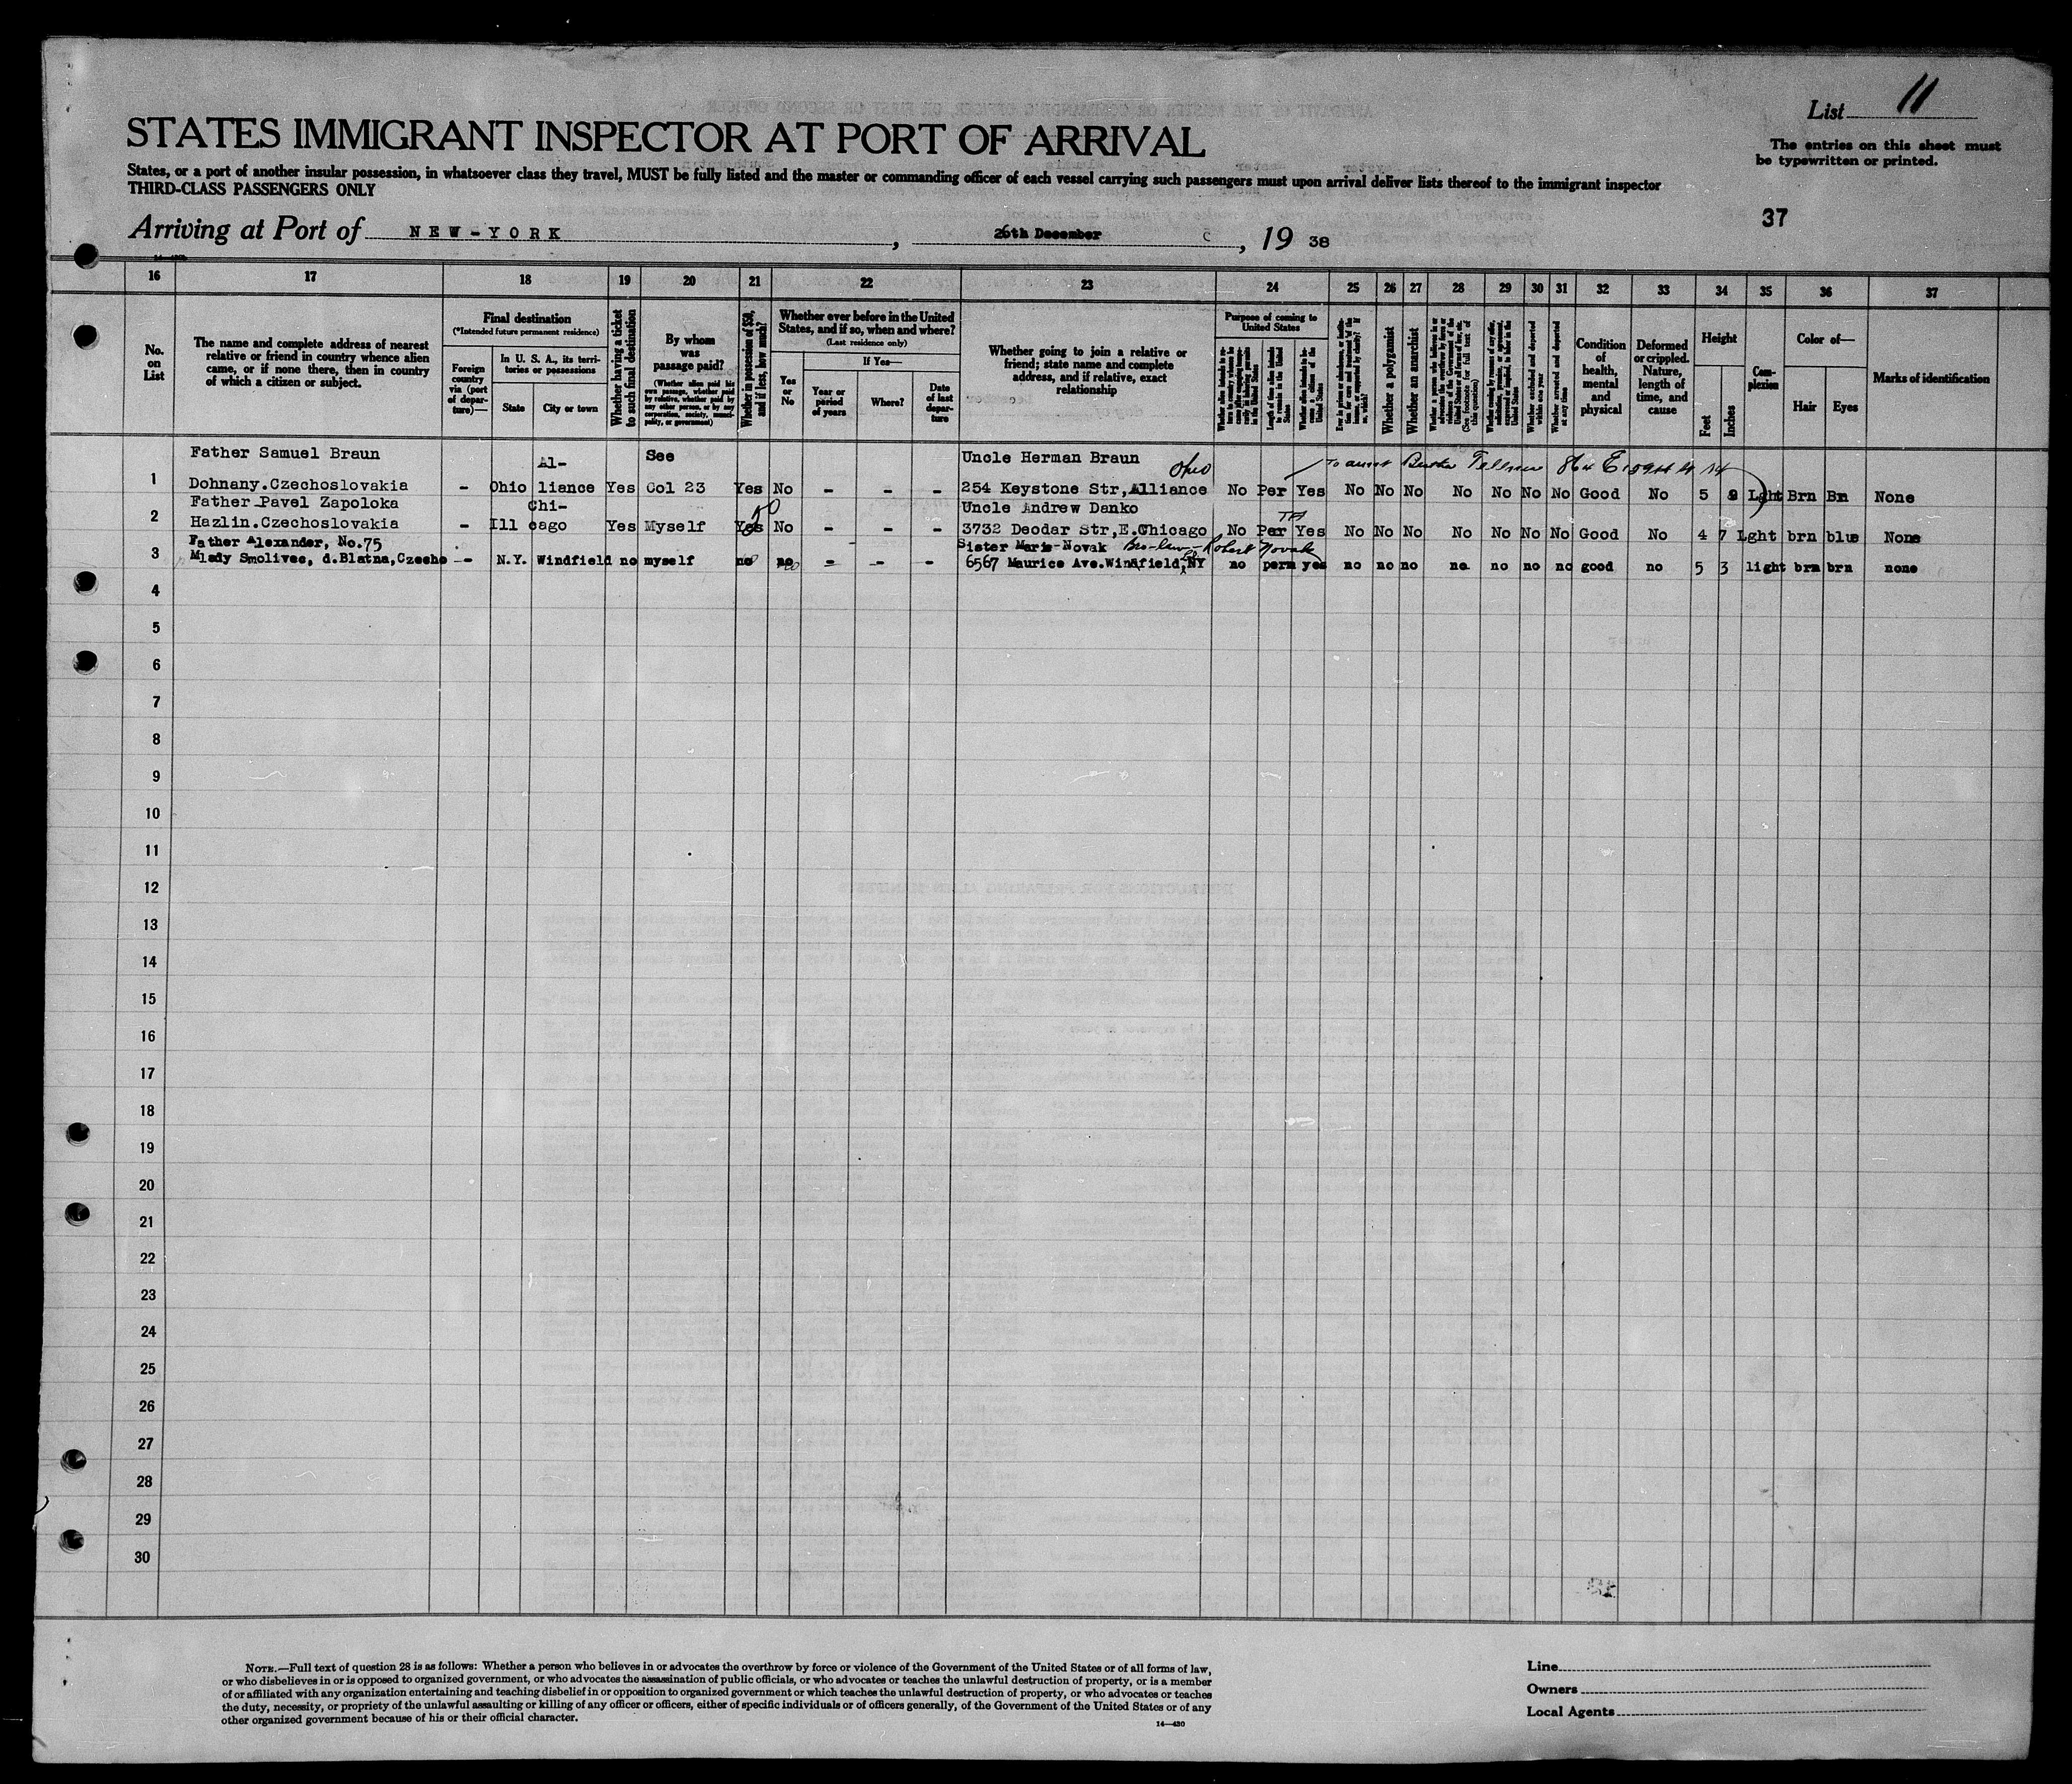 List 11
STATES IMMIGRANT INSPECTOR AT PORT OF ARRIVAL
The entries on this sheet must
be typewritten or printed.
States, or a port of another insular possession, in whatsoever class they travel, MUST be fully listed and the master or commanding officer of each vessel carrying such passengers must upon arrival deliver lists thereof to the immigrant inspector
THIRD-CLASS PASSENGERS ONLY
37
Arriving at Port of NEW-YORK, 26th December, 19 38
16 17 18 19 20 21 22 23 24 25 26 27 28 29 30 31 32 33 34 35 36 37
No. on List
The name and complete address of nearest
relative or friend in country whence alien
came, or if none there, then in country
of which a citizen or subject.
Final destination
(*Intended future permanent residence)
Foreign country via (port of departure)—
In U. S. A., its territories or possessions
State
City or town
Whether having a ticket to such final destination
By whom was passage paid?
(Whether alien paid his own passage, whether paid by relative, whether paid by any other person, or by any corporation, society, municipality, or government)
Whether in possession of $50, and if less, how much?
Whether ever before in the United
States, and if so, when and where?
(Last residence only)
Yes or No
If Yes—
Year or period of years
Where?
Date of last departure
Whether going to join a relative or
friend; state name and complete
address, and if relative, exact
relationship
Purpose of coming to United States
Length of time alien intends to remain in the United States
Whether alien intends to become a citizen of the United States
Whether a polygamist
Whether an anarchist
(See footnote for full text of this question)
Whether excluded and deported within one year
Whether arrested and deported at any time
Condition of health, mental and physical
Deformed or crippled. Nature, length of time, and cause
Height
Feet
Inches
Complexion
Color of—
Hair
Eyes
Marks of identification
Father Samuel Braun Al- See Uncle Herman Braun Ohio To aunt
1 Dohnany.Czechoslovakia - Ohio liance Yes Col 23 Yes No - - - 254 Keystone Str,Alliance No Per Yes No No No No No No No Good No 5 9 Lght Brn Bn None
Father Pavel Zapoloka Chi- Uncle Andrew Danko
2 Hazlin.Czechoslovakia - Ill cago Yes Myself Yes No - - - 3732 Deodar Str,E.Chicago No Per Yes No No No No No No No Good No 4 7 Lght brn blue None
Father Alexander, No.75 Sister Marie Novak Bro-law - Robert Novak
3 Mlady Smolivec, d.Blatna,Czecho - N.Y. Windfield no myself no no - - - 6567 Maurice Ave.Windfield,NY no perm yes no no no no no no no good no 5 3 light brn brn none
4
5
6
7
8
9
10
11
12
13
14
15
16
17
18
19
20
21
22
23
24
25
26
27
28
29
30
NOTE.—Full text of question 28 is as follows: Whether a person who believes in or advocates the overthrow by force or violence of the Government of the United States or of all forms of law,
or who disbelieves in or is opposed to organized government, or who advocates the assassination of public officials, or who advocates or teaches the unlawful destruction of property, or is a member
of or affiliated with any organization entertaining and teaching disbelief in or opposition to organized government or which teaches the unlawful destruction of property, or who advocates or teaches
the duty, necessity, or propriety of the unlawful assaulting or killing of any officer or officers, either of specific individuals or of officers generally, of the Government of the United States or of any
other organized government because of his or their official character.
14—430
Line
Owners
Local Agents